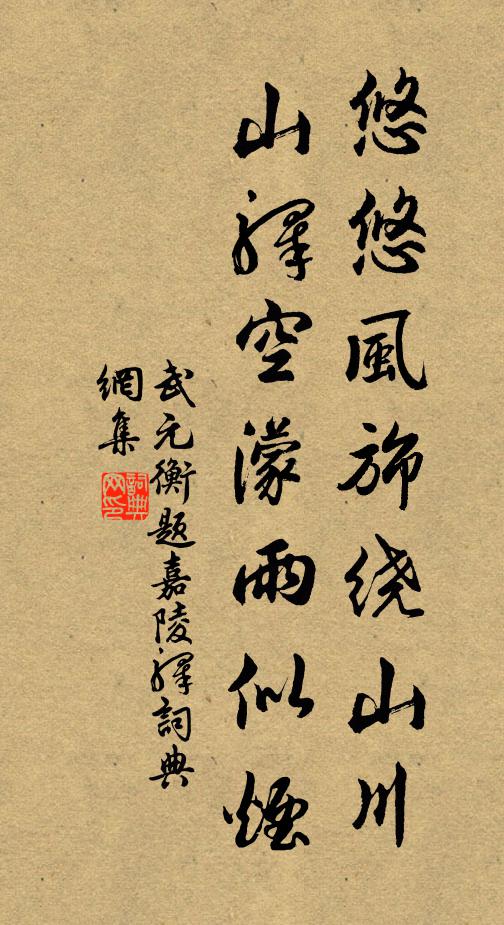 悠悠風旆绕山川
山驛空濛雨似煙
武元衡题嘉陵驛詞典
網集
詞典
网印